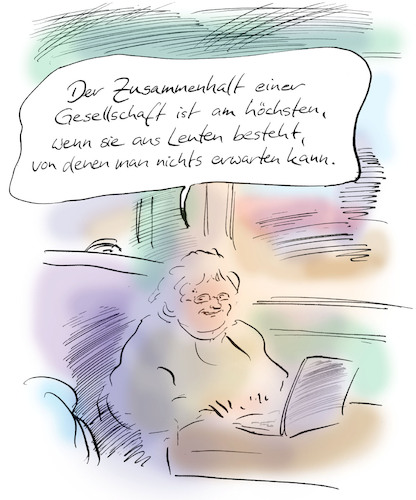 Der Zusammenhalt einer
Gesellschaft ist am höchsten,
wenn sie aus Leuten besteht,
von denen man nichts erwarten kann.